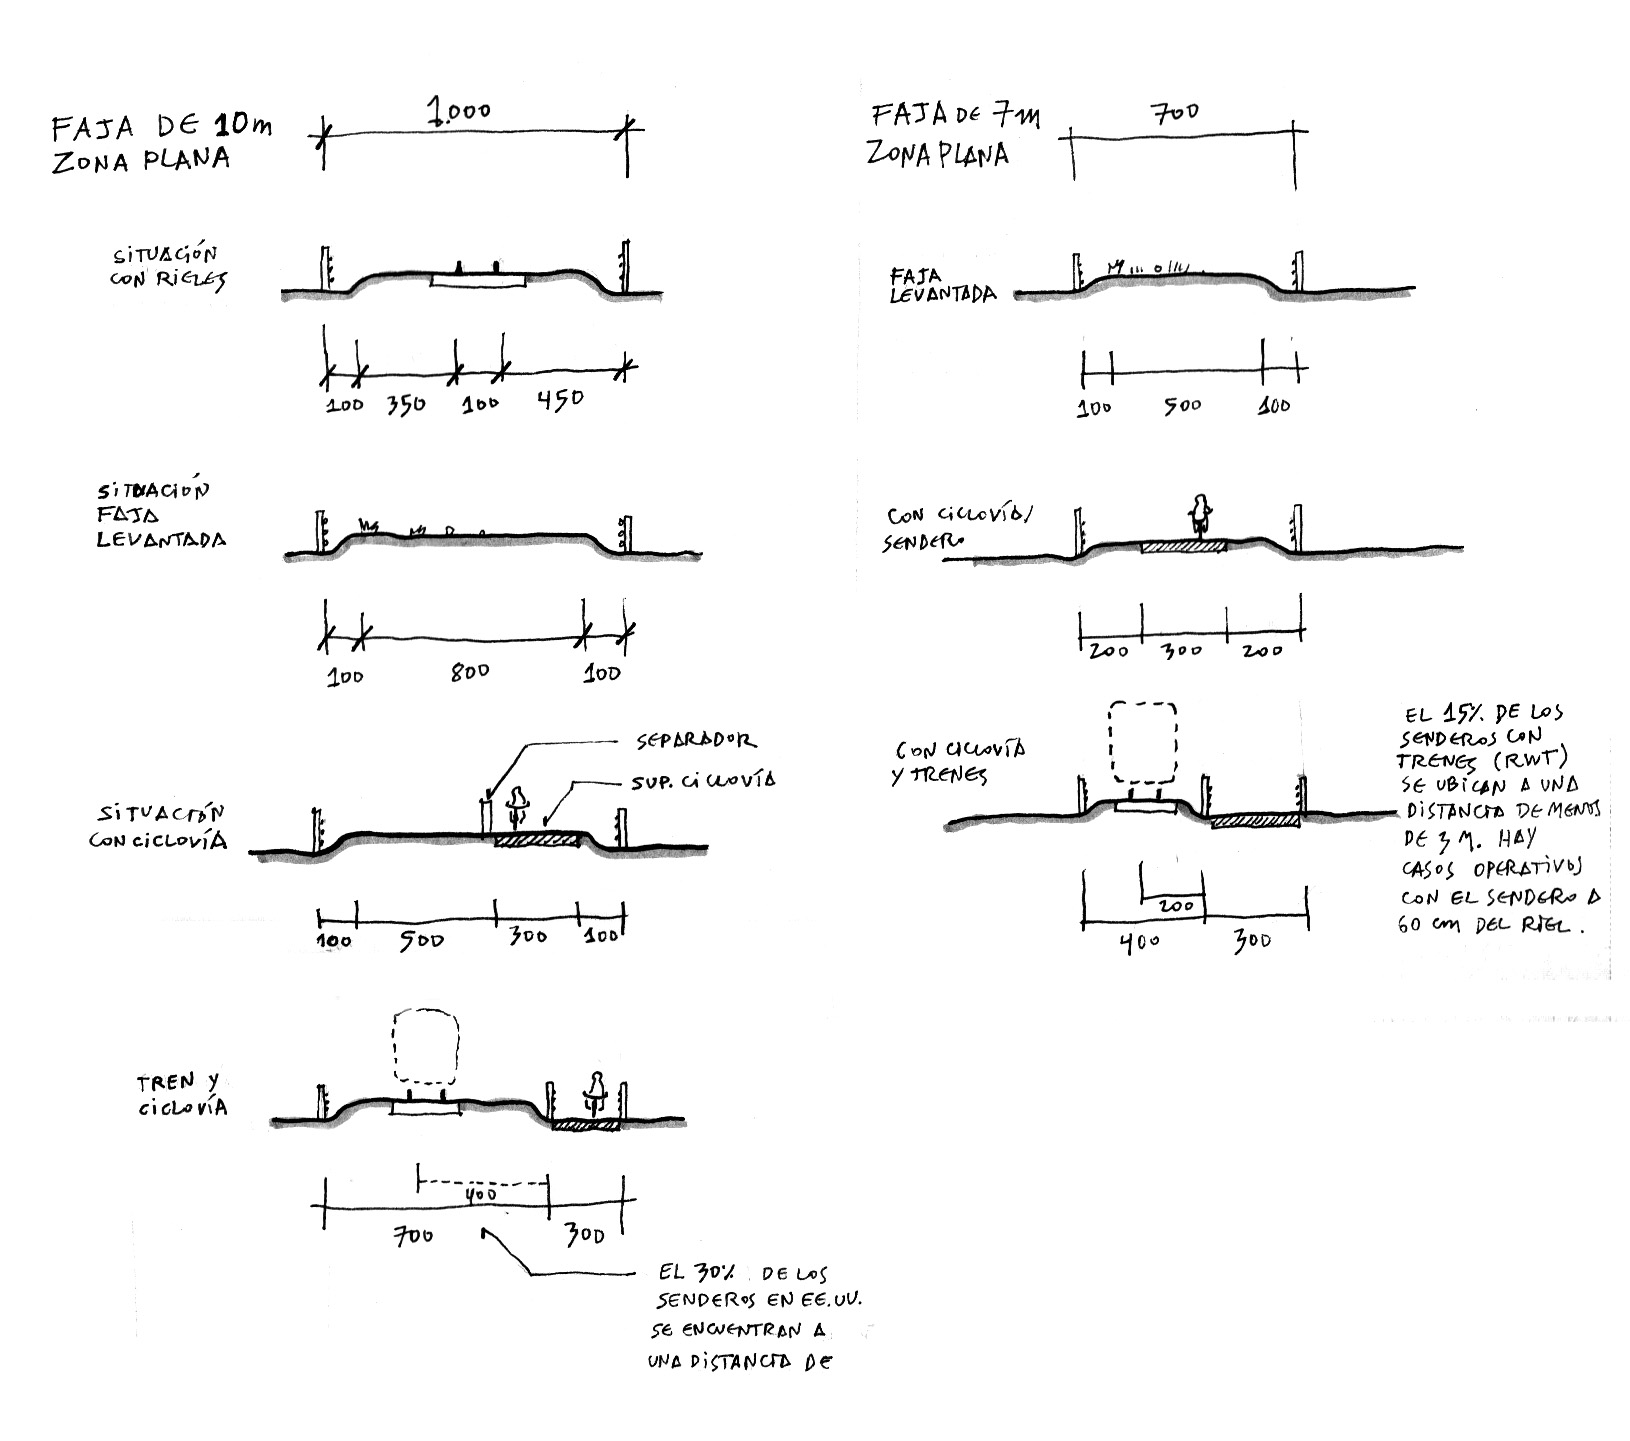 FAJA DE 10m
ZONA PLANA
1.000
SITUACIÓN
CON RIELES
100 350 100 450
SITUACIÓN
FAJA
LEVANTADA
100 800 100
SEPARADOR
SUP. CICLOVÍA
SITUACIÓN
CON CICLOVÍA
100 500 300 100
TREN Y
CICLOVÍA
400
700 300
EL 30% DE LOS
SENDEROS EN EE.UU.
SE ENCUENTRAN A
UNA DISTANCIA DE
FAJA DE 7m
ZONA PLANA
700
FAJA
LEVANTADA
100 500 100
CON CICLOVÍA/
SENDERO
200 300 200
CON CICLOVÍA
Y TRENES
200
400 300
EL 15% DE LOS
SENDEROS CON
TRENES (RWT)
SE UBICAN A UNA
DISTANCIA DE MENOS
DE 3 M. HAY
CASOS OPERATIVOS
CON EL SENDERO A
60 cm DEL RIEL.